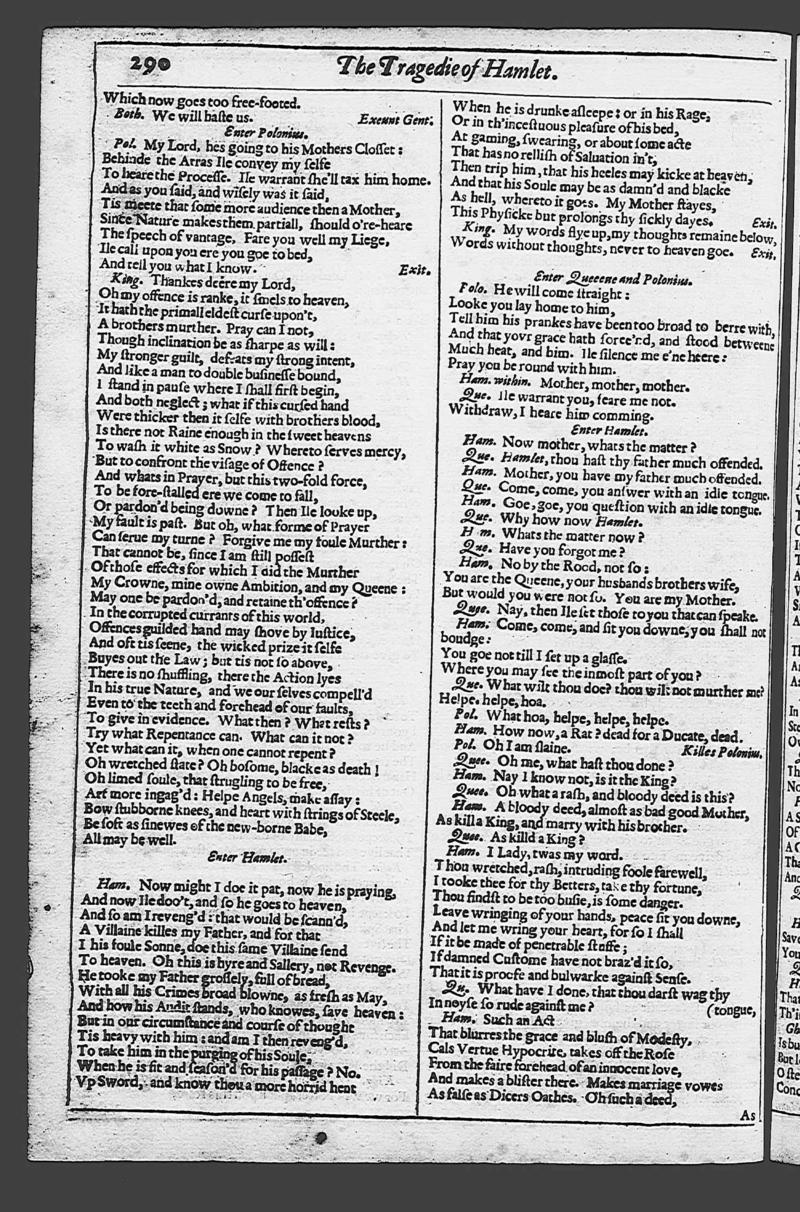 290
The Tragedie of Hamlet.
Which now goes too free-footed.
Both. We will haſte us. Exeunt Gent.
Enter Polonius.
Pol. My Lord, hes going to his Mothers Cloſſet:
Behinde the Arras Ile convey my ſelfe
To heare the Proceſſe. Ile warrant ſhe'll tax him home.
And as you ſaid, and wiſely was it ſaid,
Tis meete that ſome more audience then a Mother,
Since Nature makes them partiall, ſhould o're-heare
The ſpeech of vantage. Fare you well my Liege,
Ile call upon you ere you goe to bed,
And tell you what I know. Exit.
King. Thankes deere my Lord,
Oh my offence is ranke, it ſmels to heaven,
It hath the primall eldeſt curſe upon't,
A brothers murther. Pray can I not,
Though inclination be as ſharpe as will:
My ſtronger guilt, defeats my ſtrong intent,
And like a man to double buſineſſe bound,
I ſtand in pauſe where I ſhall firſt begin,
And both neglect; what if this curſed hand
Were thicker then it ſelfe with brothers blood,
Is there not Raine enough in the ſweet heavens
To waſh it white as Snow? Whereto ſerves mercy,
But to confront the viſage of Offence?
And whats in Prayer, but this two-fold force,
To be fore-ſtalled ere we come to fall,
Or pardon'd being downe? Then Ile looke up,
My fault is paſt. But oh, what forme of Prayer
Can ſerue my turne? Forgive me my foule Murther:
That cannot be, ſince I am ſtill poſſeſt
Of thoſe effects for which I did the Murther
My Crowne, mine owne Ambition, and my Queene:
May one be pardon'd, and retaine th'offence?
In the corrupted currants of this world,
Offences guilded hand may ſhove by Iuſtice,
And oft tis ſeene, the wicked prize it ſelfe
Buyes out the Law; but tis not ſo above,
There is no ſhuffling, there the Action lyes
In his true Nature, and we our ſelves compell'd
Even to the teeth and forehead of our faults,
To give in evidence. What then? What reſts?
Try what Repentance can. What can it not?
Yet what can it, when one cannot repent?
Oh wretched ſtate? Oh boſome, blacke as death!
Oh limed ſoule, that ſtrugling to be free,
Art more ingag'd: Helpe Angels, make aſſay:
Bow ſtubborne knees, and heart with ſtrings of Steele,
Be ſoft as ſinewes of the new-borne Babe,
All may be well.
Enter Hamlet.
Ham. Now might I doe it pat, now he is praying,
And now Ile doo't, and ſo he goes to heaven,
And ſo am I reveng'd: that would be ſcann'd,
A Villaine killes my Father, and for that
I his foule Sonne, doe this ſame Villaine ſend
To heaven. Oh this is hyre and Sallery, not Revenge.
He tooke my Father groſſely, full of bread,
With all his Crimes broad blowne, as freſh as May,
And how his Audit ſtands, who knowes, ſave heaven:
But in our circumſtance and courſe of thought
Tis heavy with him: and am I then reveng'd,
To take him in the purging of his Soule,
When he is fit and ſeaſon'd for his paſſage? No.
Vp Sword, and know thou a more horrid hent
When he is drunke aſleepe: or in his Rage,
Or in th'inceſtuous pleaſure of his bed,
At gaming, ſwearing, or about ſome acte
That has no relliſh of Saluation in't,
Then trip him, that his heeles may kicke at heaven,
And that his Soule may be as damn'd and blacke
As hell, whereto it goes. My Mother ſtayes,
This Phyſicke but prolongs thy ſickly dayes. Exit.
King. My words flye up, my thoughts remaine below,
Words without thoughts, never to heaven goe. Exit.
Enter Queeene and Polonius.
Polo. He will come ſtraight:
Looke you lay home to him,
Tell him his prankes have been too broad to berre with,
And that yovr grace hath ſcree'nd, and ſtood betweene
Much heat, and him. Ile ſilence me e'ne heere:
Pray you be round with him.
Ham. within. Mother, mother, mother.
Que. Ile warrant you, feare me not.
Withdraw, I heare him comming.
Enter Hamlet.
Ham. Now mother, whats the matter?
Que. Hamlet, thou haſt thy father much offended.
Ham. Mother, you have my father much offended.
Que. Come, come, you anſwer with an idle tongue.
Ham. Goe, goe, you queſtion with an idle tongue.
Que. Why how now Hamlet.
H m. Whats the matter now?
Que. Have you forgot me?
Ham. No by the Rood, not ſo:
You are the Queene, your husbands brothers wife,
But would you were not ſo. You are my Mother.
Quee. Nay, then Ile ſet thoſe to you that can ſpeake.
Ham. Come, come, and ſit you downe, you ſhall not
boudge:
You goe not till I ſet up a glaſſe.
Where you may ſee the inmoſt part of you?
Que. What wilt thou doe? thou wilt not murther me?
Helpe, helpe, hoa.
Pol. What hoa, helpe, helpe, helpe.
Ham. How now, a Rat? dead for a Ducate, dead.
Pol. Oh I am ſlaine. Killes Polonius.
Quee. Oh me, what haſt thou done?
Ham. Nay I know not, is it the King?
Quee. Oh what a raſh, and bloody deed is this?
Ham. A bloody deed, almoſt as bad good Mother,
As kill a King, and marry with his brother.
Quee. As killd a King?
Ham. I Lady, twas my word.
Thou wretched, raſh, intruding foole farewell,
I tooke thee for thy Betters, take thy fortune,
Thou findſt to be too buſie, is ſome danger.
Leave wringing of your hands, peace ſit you downe,
And let me wring your heart, for ſo I ſhall
If it be made of penetrable ſtuffe;
If damned Cuſtome have not braz'd it ſo,
That it is proofe and bulwarke againſt Senſe.
Qu. What have I done, that thou darſt wag thy
(tongue,
In noyſe ſo rude againſt me?
Ham. Such an Act
That blurres the grace and bluſh of Modeſty,
Cals Vertue Hypocrite, takes off the Roſe
From the faire forehead of an innocent love,
And makes a bliſter there. Makes marriage vowes
As falſe as Dicers Oathes. Oh ſuch a deed,
As